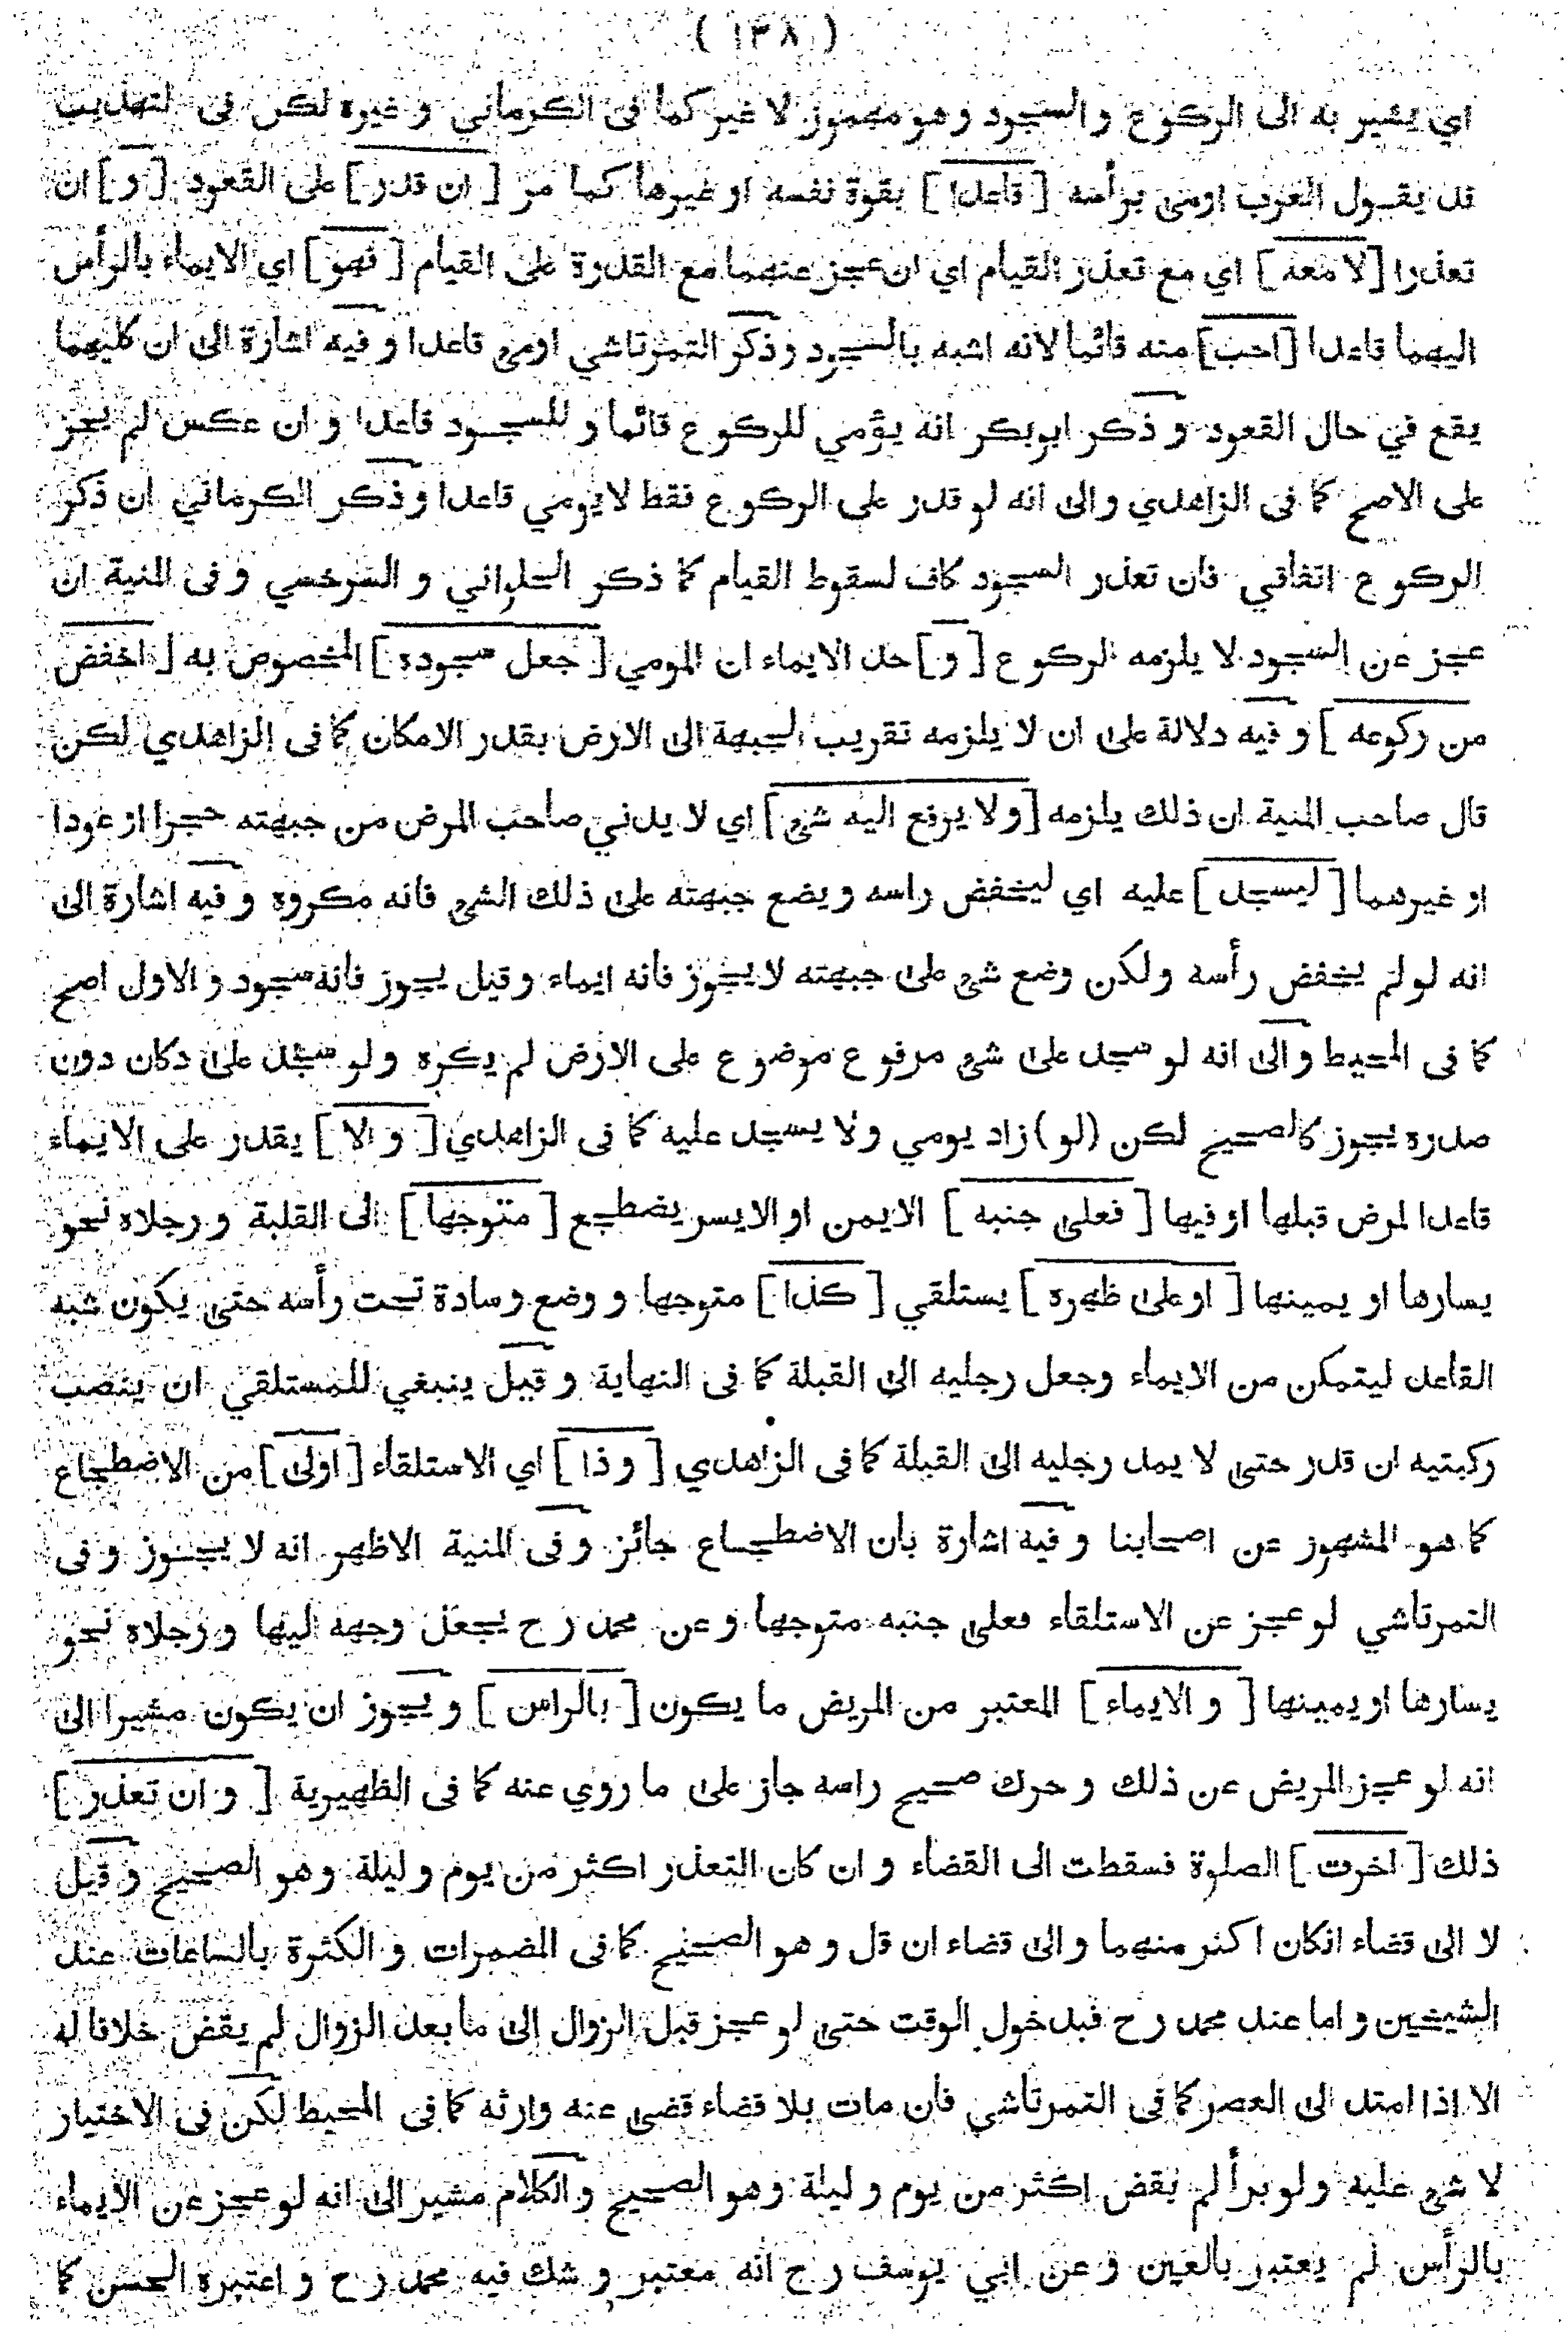 ( ١٣٨ )
اي يشير به الى الركوع و السجود و هو مهموز لا غير كما فى الكرماني و غيره لكن فى التهذيب
قد يقول العرب اومى برأسه [ قاعدا ] بقوة نفسه او غيرها كما مر [ ان قدر ] على القعود [ و ] ان
تعذرا [ لا معه ] اي مع تعذر القيام اي ان عجز عنهما مع القدرة على القيام [ فهو ] اي الايماء بالرأس
اليهما قاعدا [ احب ] منه قائما لانه اشبه بالسجود و ذكر التمرتاشي اومى قاعدا و فيه اشارة الى ان كليهما
يقع في حال القعود و ذكر ابوبكر انه يؤمي للركوع قائما و للسجود قاعدا و ان عكس لم يجز
على الاصح كما فى الزاهدي و الى انه لو قدر على الركوع فقط لا يومي قاعدا و ذكر الكرماني ان ذكر
الركوع اتفاقي فان تعذر السجود كاف لسقوط القيام كما ذكر الحلواني و السرخسي و فى المنية ان
عجز عن السجود لا يلزمه الركوع [ و ] حد الايماء ان المومي [ جعل سجوده ] المخصوص به [ اخفض
من ركوعه ] و فيه دلالة على ان لا يلزمه تقريب الجبهة الى الارض بقدر الامكان كما فى الزاهدي لكن
قال صاحب المنية ان ذلك يلزمه [ و لا يرفع اليه شئ ] اي لا يدني صاحب المرض من جبهته حجرا او عودا
او غيرهما [ ليسجد ] عليه اي ليخفض راسه و يضع جبهته على ذلك الشئ فانه مكروه و فيه اشارة الى
انه لو لم يخفض رأسه و لكن وضع شئ على جبهته لا يجوز فانه ايماء و قيل يجوز فانه سجود و الاول اصح
كما فى المحيط و الى انه لو سجد على شئ مرفوع موضوع على الارض لم يكره و لو سجد على دكان دون
صدره يجوز كالصحيح لكن (لو) زاد يومي و لا يسجد عليه كما فى الزاهدي [ و الا ] يقدر على الايماء
قاعدا لمرض قبلها او فيها [ فعلى جنبه ] الايمن او الايسر يضطجع [ متوجها ] الى القلبة و رجلاه نحو
يسارها او يمينها [ او على ظهره ] يستلقي [ كذا ] متوجها و وضع وسادة تحت رأسه حتى يكون شبه
القاعد ليتمكن من الايماء و جعل رجليه الى القبلة كما فى النهاية و قيل ينبغي للمستلقي ان ينصب
ركبتيه ان قدر حتى لا يمد رجليه الى القبلة كما فى الزاهدي [ و ذا ] اي الاستلقاء [ اولى ] من الاضطجاع
كما هو المشهور عن اصحابنا و فيه اشارة بان الاضطجاع جائز و فى المنية الاظهر انه لا يجوز و فى
التمرتاشي لو عجز عن الاستلقاء فعلى جنبه متوجها و عن محمد رح يجعل وجهه اليها و رجلاه نحو
يسارها او يمينها [ و الايماء ] المعتبر من المريض ما يكون [ بالراس ] و يجوز ان يكون مشيرا الى
انه لو عجز المريض عن ذلك و حرك صحيح راسه جاز على ما روي عنه كما فى الظهيرية [ و ان تعذر ]
ذلك [ اخرت ] الصلوة فسقطت الى القضاء و ان كان التعذر اكثر من يوم و ليلة و هو الصحيح و قيل
لا الى قضاء انكان اكثر منهما و الى قضاء ان قل و هو الصحيح كما فى المضمرات و الكثرة بالساعات عند
الشيخين و اما عند محمد رح فبدخول الوقت حتى لو عجز قبل الزوال الى ما بعد الزوال لم يقض خلافا له
الا اذا امتد الى العصر كما فى التمرتاشي فان مات بلا قضاء قضى عنه وارثه كما فى المحيط لكن فى الاختيار
لا شئ عليه و لو برأ لم يقض اكثر من يوم و ليلة و هو الصحيح و الكلام مشير الى انه لو عجز عن الايماء
بالرأس لم يعتبر بالعين و عن ابي يوسف رح انه معتبر و شك فيه محمد رح و اعتبره الحسن كما